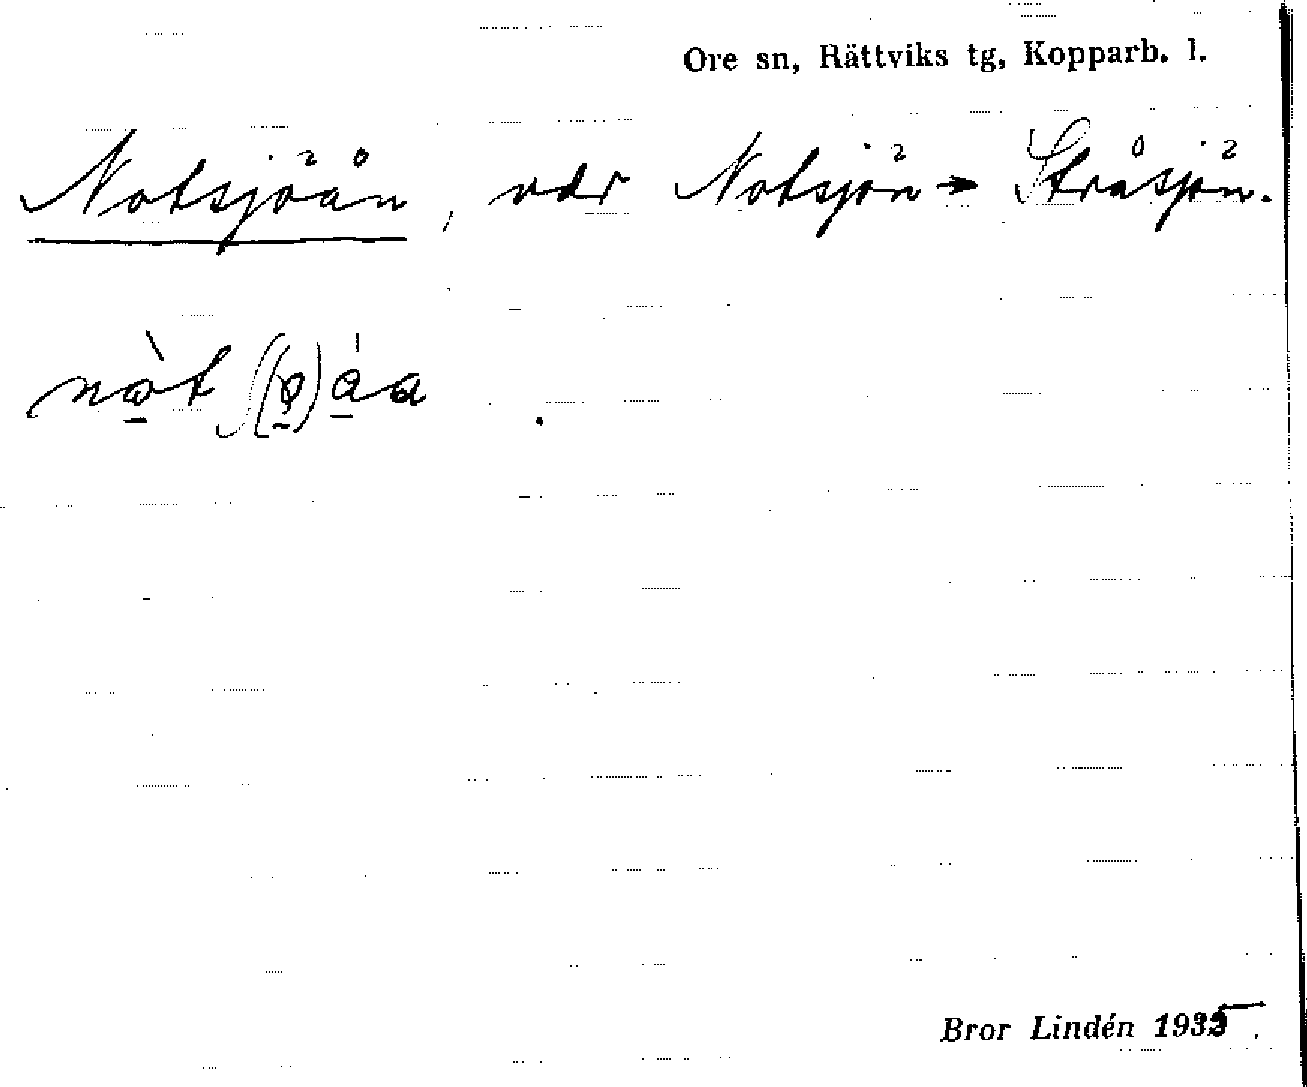 Ore sn, Rättviks tg, Kopparb. l.
Notsjöån, vdr Notsjön → Stråsjön.
nò̠t ʃ(ö̠)á̠a
Bror Lindén 1935.